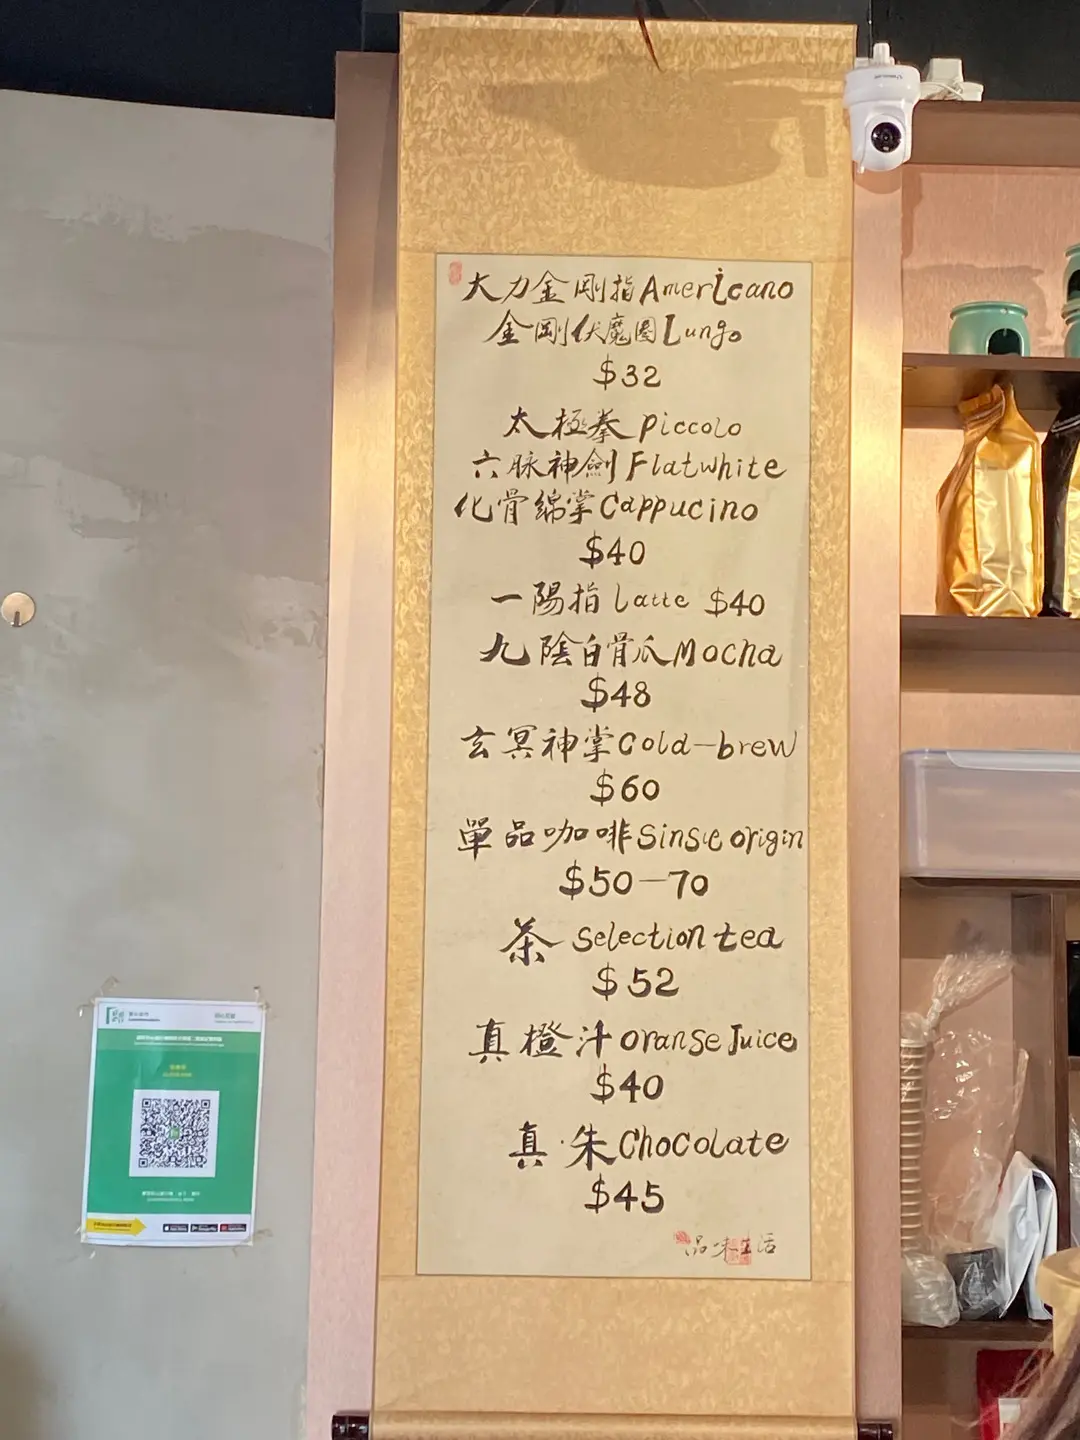 大力金剛指Americano
金剛伏魔圈Lungo
$32
太極拳piccolo
六脉神劍Flatwhite
化骨綿掌Cappucino
$40
一陽指Latte $40
九陰白骨爪Mocha
$48
玄冥神掌Cold-brew
$60
單品咖啡Single origin
$50-70
茶 Selection tea
$52
真橙汁orange Juice
$40
真·朱Chocolate
$45
品味生活